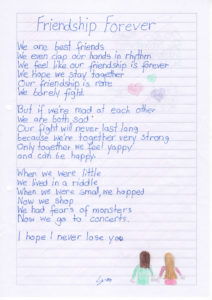 Friendship Forever
We are best friends
We even clap our hands in rhythm
We feel like our friendship is forever
We hope we stay together
Our friendship is rare
We barely fight
But if we're mad at each other
We are both sad
Our fight will never last long
because we're together very strong
Only together we feel yappy
and can be happy.
When we were little
We lived in a riddle
When we were small, we hopped
Now we shop
We had fears of monsters
Now we go to concerts.
I hope I never lose you